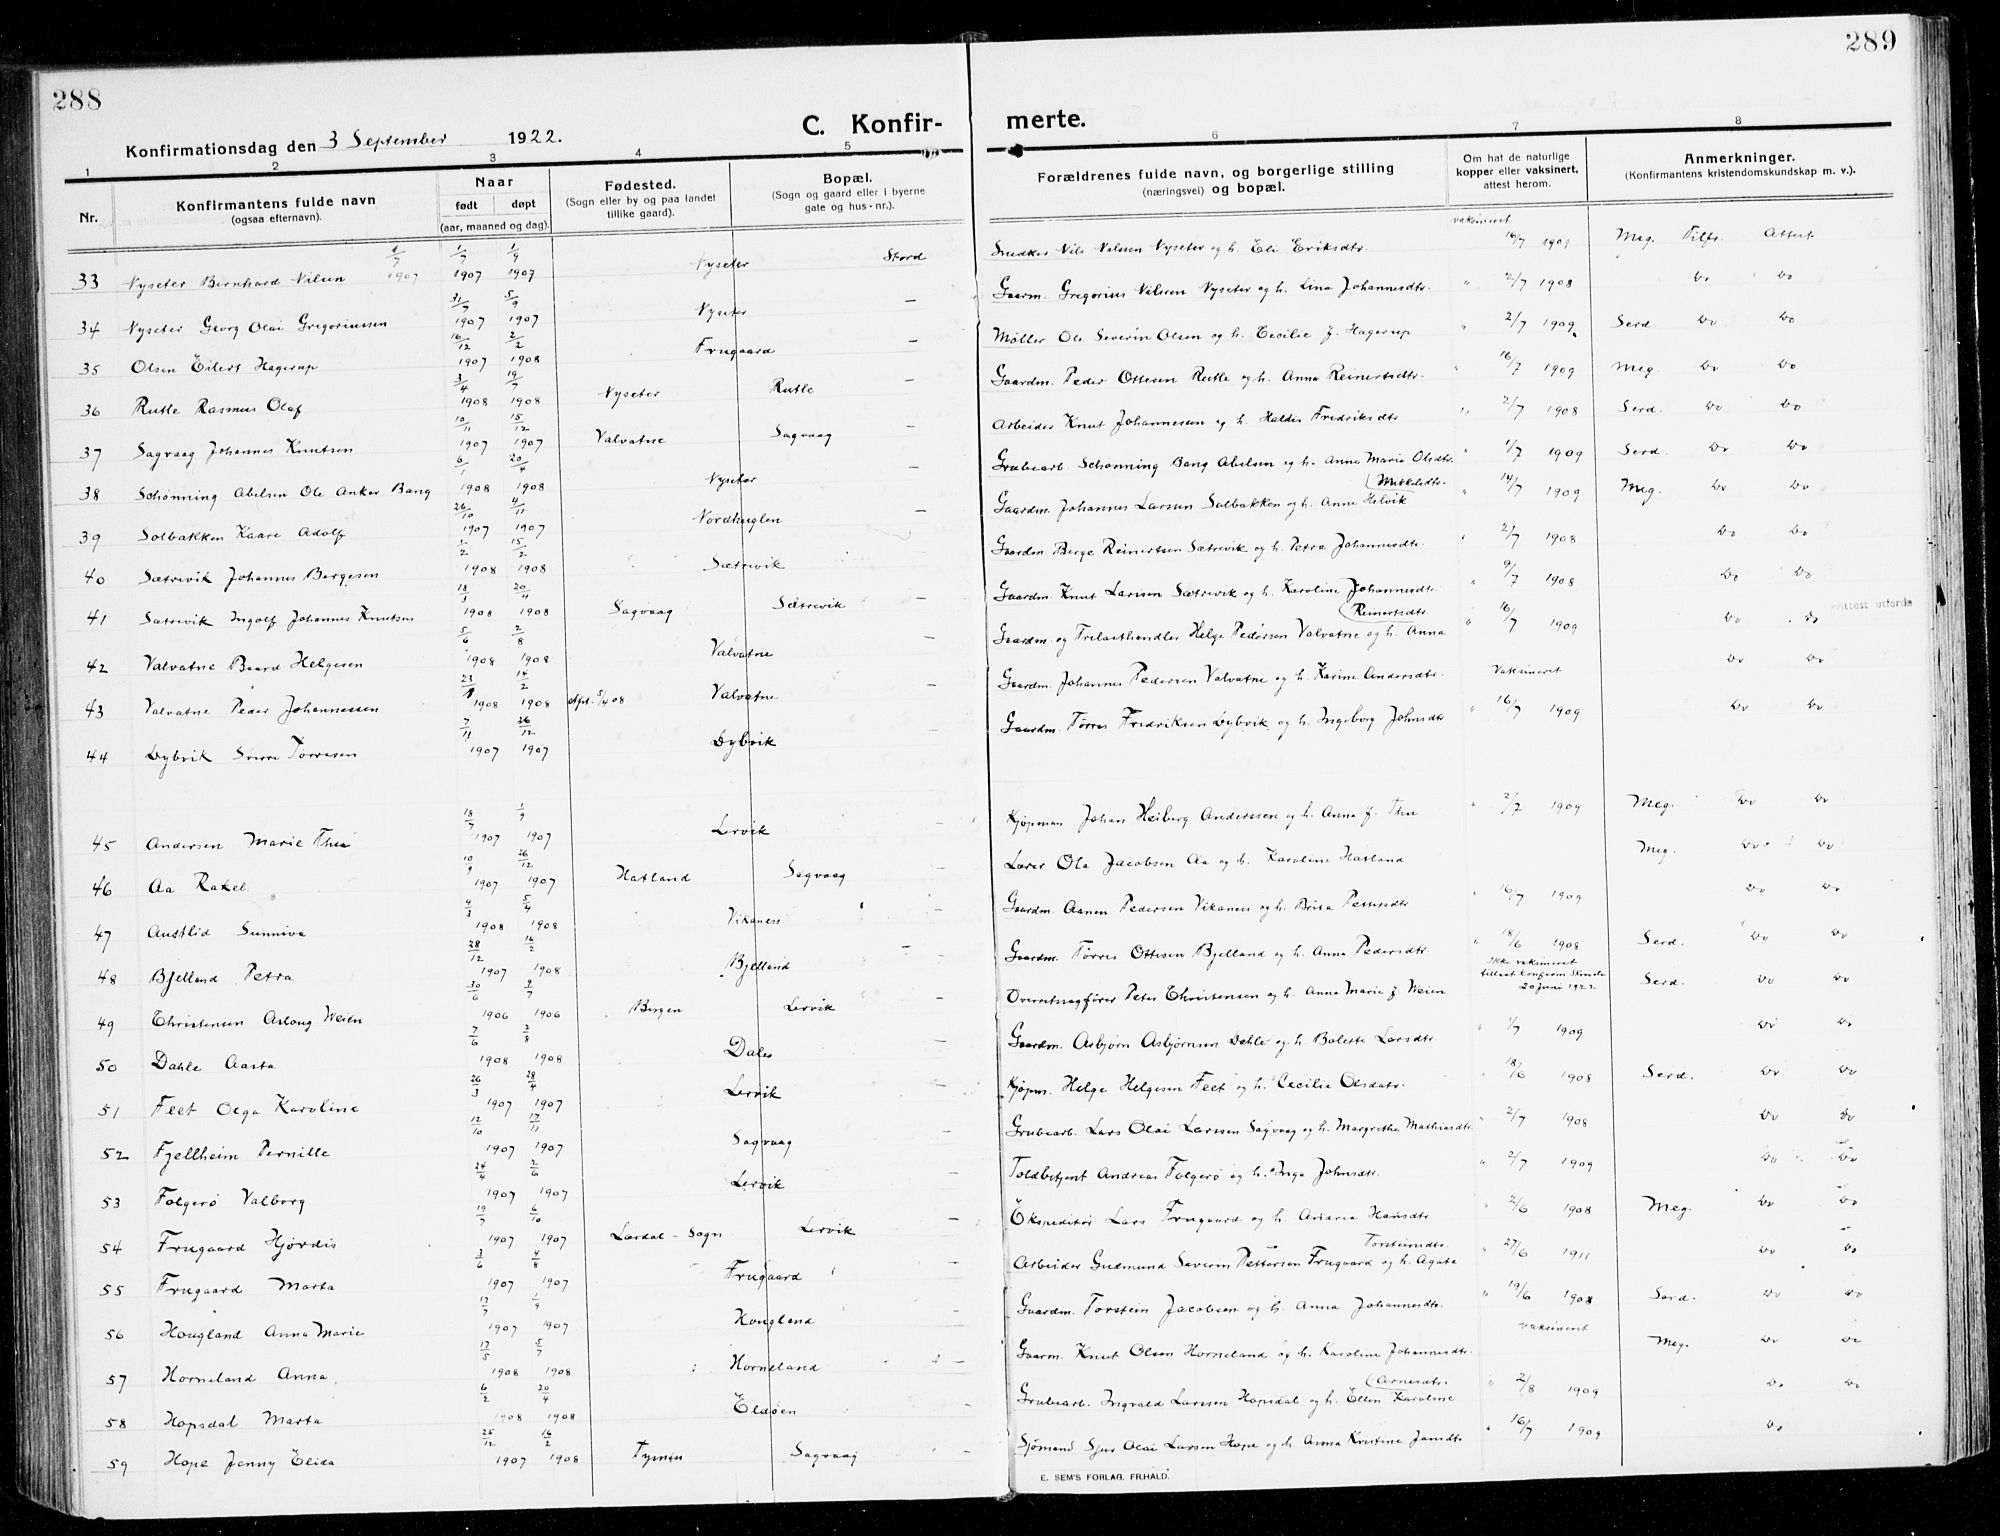 288
289
Konfirmationsdag den 3 September 1922.
C. Konfir-
merte.
1 2 3 4 5 6 7 8
Nr.
Konfirmantens fulde navn
(ogsaa efternavn).
Naar
født døpt
(aar, maaned og dag).
Fødested.
(Sogn eller by og paa landet
tillike gaard).
Bopæl.
(Sogn og gaard eller i byerne
gate og hus-nr.).
Forældrenes fulde navn, og borgerlige stilling
(næringsvei) og bopæl.
Om hat de naturlige
kopper eller vaksinert,
attest herom.
Anmerkninger.
(Konfirmantens kristendomskundskap m. v.).
33 Nyseter Bernhard Nilsen 1/7 1907 1/7 1907 1/9 1907 Nyseter Stord Snedker Nils Nilssen Nyseter og h. Eli Eriksdtr. vaksineret 16/7 1909 Meg. Tilfr. Attest
34 Nyseter Georg Olai Gregoriussen 31/7 1907 5/9 1907 Nyseter — Gaarm. Gregorius Nilssen Nyseter og h. Lina Johannesdtr. " 2/7 1908 Do Do
35 Olsen Eilert Hagerup 16/12 1907 2/2 1908 Frugaard — Møller Ole Severin Olsen og h. Cecilie f. Hagerup " 2/7 1909 Serd. Do Do
36 Rutle Rasmus Olaf 3/4 1908 19/7 1908 Nyseter Rutle — Gaardm. Peder Ottesen Rutle og h. Anna Reinertsdtr. " 16/7 1909 Meg. Do Do
37 Sagvaag Johannes Knutsen 10/11 1907 15/12 1907 Valvatne Sagvaag — Arbeider Knut Johannessen og h. Haldis Fredriksdtr " 2/7 1908 Serd. Do Do
38 Schønning Abelsen Ole Anker Bang 6/1 1908 20/4 1908 Nyseter — Grubearb. Schønning Bang Abelsen og h. Anna Marie Olsdtr. " 1/7 1909 Serd. Do Do
39 Solbakken Kaare Adolf 26/10 1907 4/11 1907 Nordhuglen — Gaardm. Johannes Larsen Solbakken og h. Anne Helvik (Mikkelsdtr. " 14/7 1909 Meg. Do Do
40 Sætrevik Johannes Bergesen 1/2 1908 15/2 1908 Sætrevik Gaardm. Berge Reinertsen Sætrevik og h. Petra Johannesdtr. " 2/7 1908 Do Do
41 Sætrevik Ingolf Johannes Knutsen 18/3 1908 20/4 1908 Sagvaag Sætrevik — Gaardm. Knut Larssen Sætrevik og h. Karoline Johannesdtr " 9/7 1908 Do Do
42 Valvatne Baard Helgesen 5/6 1908 2/8 1908 Valvatne — Gaardm. og Trelasthandler Helge Pedersen Valvatne og h. Anna (Reinertsdtr " 16/7 1909 Do Do Attest utferde
43 Valvatne Peder Johannessen 23/1 1908 14/2 1908 5/4 08 Valvatne — Gaardm. Johannes Pedersen Valvatne og h. Karine Andersdtr. Vaksineret Do Do
44 Dybvik Sverre Tørresen 7/11 1907 26/12 1907 Dybvik Gaardm. Tørres Fredriksen Dybvik og h. Ingeborg Johnsdtr " 16/7 1909 Do Do
45 Andersen Marie Thea 18/7 1907 1/9 1907 Lervik — Kjøpman Johan Heiberg Anderssen og h. Anna f. Thu " 2/7 1909 Meg. Do Do
46 Aa Rakel 10/9 1907 26/12 1907 Hatland Sagvaag — Lærer Ola Jacobsen Aa og h. Karoline Hatland Meg. Do Do
47 Austlid Sunniva 4/3 1908 5/4 1908 Vikaness — Gaardm. Aanen Pedersen Vikaness og h. Brita Pettersdtr " 16/7 1909 Do Do
48 Bjelland Petra 28/12 1907 16/2 1908 Bjelland — Gaardm. Tørres Ottesen Bjelland og h. Anna Pedersdtr " 18/6 1908 Serd. Do Do
49 Christensen Aslaug Weien 30/6 1906 9/7 1906 Bergen Lervik — Overretssagfører Peter Christensen og h. Anna Marie f Weien ikke vaksineret tillaat konfirm 20 Juni 1922 Serd. Do Do
50 Dahle Aasta 7/6 1908 2/8 1908 Dale — Gaardm. Asbjørn Asbjørnsen Dahle og h. Bolette Larsdtr " 1/7 1909 Do Do
51 Feet Olga Karoline 26/3 1907 28/4 1907 Lervik — Kjøpm. Helge Helgesen Feet og h. Cecilie Olsdatr. " 18/6 1908 Serd. Do Do
52 Fjellheim Pernille 12/10 1907 17/11 1907 Sagvaag — Grubearb. Lars Olai Larssen Sagvaag og h. Margrethe Mathiasdtr " 2/7 1908 Do Do
53 Folgerø Valborg 24/4 1907 2/6 1907 Lervik — Toldbetjent Andreas Folgerø og h. Inga Johnsdtr. " 2/7 1909 Do Do
54 Frugaard Hjørdis 19/7 1907 6/10 1907 Lærdal - Sogn Lervik — Ekspeditør Lars Frugaard og h. Andrea Hansdtr " 2/6 1908 Meg. Do Do
55 Frugaard Marta 3/6 1907 4/8 1907 Frugaard — Arbeider Gudmund Severin Pettersen Frugaard og h. Agate Torsteinsdtr " 27/6 1911 Do Do
56 Hougland Anna Marie 17/7 1907 1/9 1907 Hougland — Gaardm. Torstein Jacobsen og h. Anna Johannesdtr. " 19/6 1908 Serd. Do Do
57 Horneland Anna 17/5 1908 5/7 1908 Horneland — Gaarm. Knut Olsen Horneland og h. Karoline Johannesdtr. vaksineret Meg. Do Do
58 Hopsdal Marta 6/2 1908 20/4 1908 Eldøen Grubearb. Ingvald Larssen Hopsdal og h. Ellen Karoline (Arnesdtr. " 2/8 1909 Do Do
59 Hope Jenny Elida 25/12 1907 16/2 1908 Tysnes Sagvaag — Sjømand Sjur Olai Larsen Hope og h. Anna Kristine Jansdtr " 16/7 1909 Do
E. SEM'S FORLAG. FR.HALD.